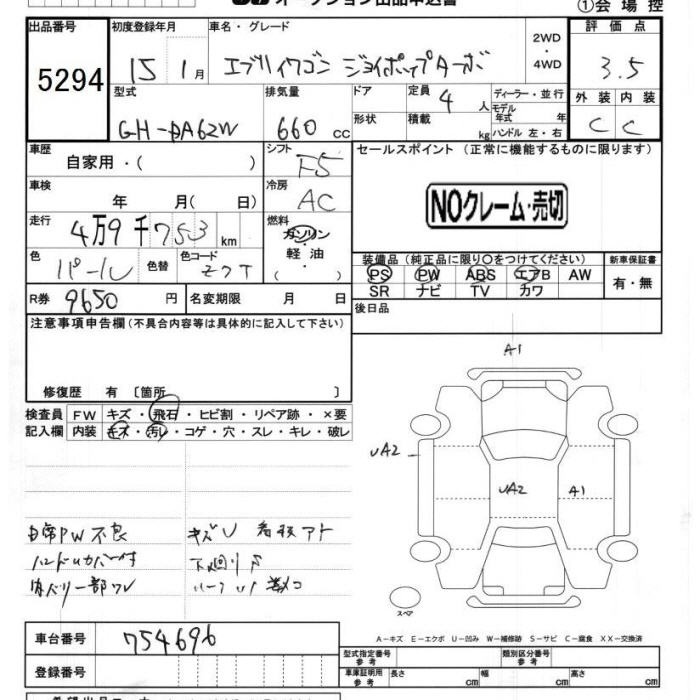 オークション出品申込書
①会場控
出品番号 初度登録年月 車名・グレード 2WD・4WD 評価点
5294 15 1月 エブリイワゴン ジョイポップターボ 3.5
型式 排気量 ドア 定員 4人 ディーラー・並行 外装 内装
GH-DA62W 660cc 形状 積載 kg モデル年式 年 ハンドル 左・右 C C
車歴 自家用・( ) シフト F5 セールスポイント (正常に機能するものに限ります)
車検 年 月( 日) 冷房 AC
NOクレーム・売切
走行 4万9千753km 燃料 ガソリン・軽油( )
色 パール 色替 色コード Z7T
装備品 (純正品に限り○をつけてください) 新車保証書
PS PW ABS エアB AW 有・無
SR ナビ TV カワ
R券 9650円 名変期限 月 日 後日品
注意事項申告欄 (不具合内容等は具体的に記入して下さい)
修復歴 有 〔箇所 〕
検査員記入欄 FW キズ・飛石・ヒビ割・リペア跡・×要
内装 キズ・汚レ・コゲ・穴・スレ・キレ・破レ
A1
UA2
UA2 A1
PW不良 キズU 看板アト
ハンドルカバー付 下廻りサ
一部ワレ
スペア
A-キズ E-エクボ U-凹み W-補修跡 S-サビ C-腐食 XX-交換済
車台番号 754696
登録番号
型式指定番号 参考 類別区分番号 参考
車庫証明用 参考 長さ cm 幅 cm 高さ cm